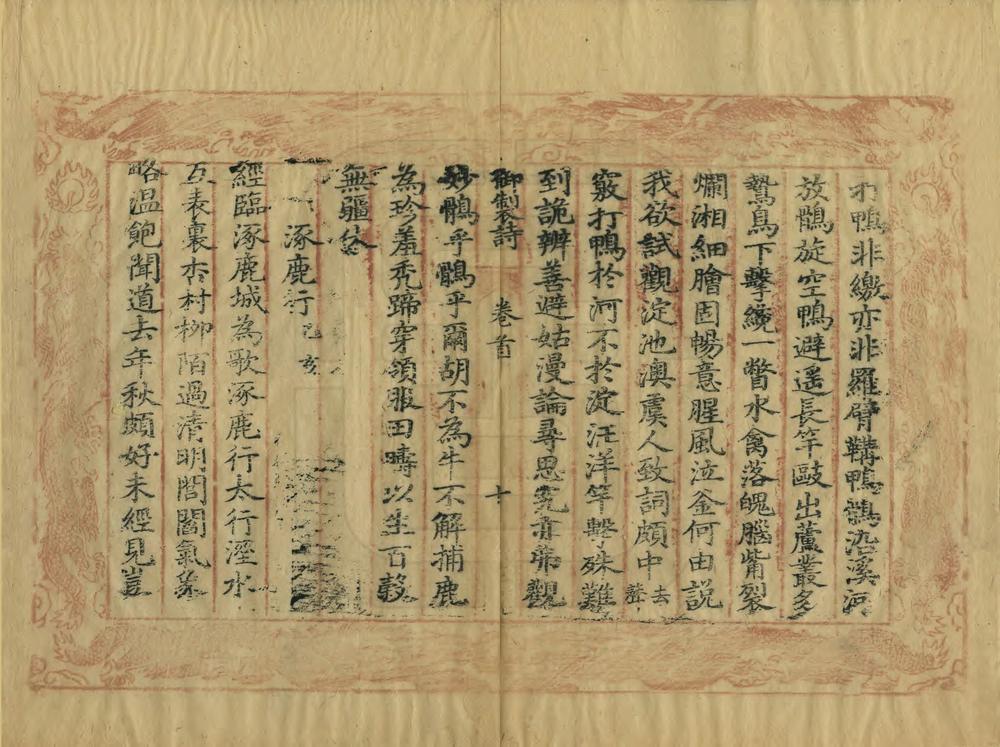 打鴨非繳亦非羅臂鞲鴨鶻沿溪河
放鶻旋空鴨避遙長竿敺出蘆叢多
鷙鳥下擊纔一瞥水禽落魄腦觜裂
爛湘細膾固暢意腥風泣釜何由說
我欲試觀淀池澳虞人致詞頗中去聲
竅打鴨於河不於淀汪洋竿擊殊難
到詭辨善避姑漫論尋思究亦弗觀
御製詩 卷首 十
妙鶻乎鶻乎爾胡不為牛不解捕鹿
為珍羞禿蹄穿領服田疇以生百穀
無疆休
涿鹿行 亥
經臨涿鹿城為歌涿鹿行太行溼水
互表裏杏村柳陌過清明閭閻氣象
略温飽聞道去年秋頗好未經見豈